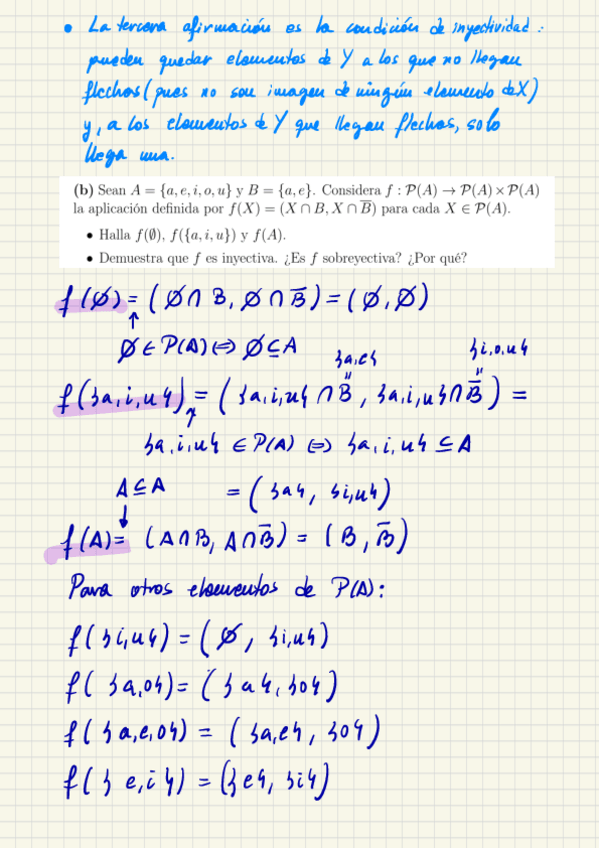 • La tercera afirmación es la condición de inyectividad:
pueden quedar elementos de Y a los que no llegan
flechas (pues no son imagen de ningún elemento de X)
y, a los elementos de Y que llegan flechas, solo
llega una.
(b) Sean A = {a, e, i, o, u} y B = {a, e}. Considera f : P(A) → P(A) × P(A)
la aplicación definida por f(X) = (X ∩ B, X ∩ B̅) para cada X ∈ P(A).
• Halla f(∅), f({a, i, u}) y f(A).
• Demuestra que f es inyectiva. ¿Es f sobreyectiva? ¿Por qué?
f(∅) = (∅ ∩ B, ∅ ∩ B̅) = (∅, ∅)
↑
∅ ∈ P(A) ⇔ ∅ ⊆ A
{a,e} {i,o,u}
f({a,i,u}) = ({a,i,u} ∩ B, {a,i,u} ∩ B̅) =
{a,i,u} ∈ P(A) ⇔ {a,i,u} ⊆ A
A ⊆ A = ({a}, {i,u})
↓
f(A) = (A ∩ B, A ∩ B̅) = (B, B̅)
Para otros elementos de P(A):
f({i,u}) = (∅, {i,u})
f({a,o}) = ({a}, {o})
f({a,e,o}) = ({a,e}, {o})
f({e,i}) = ({e}, {i})